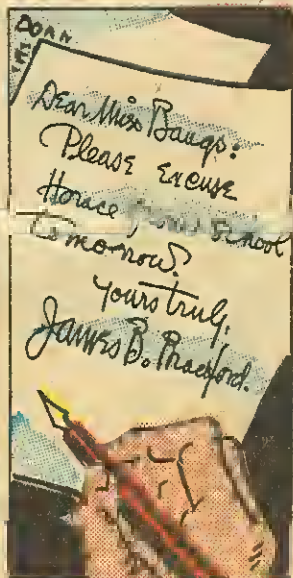 Dear Miss Bangs:
Please Excuse
Horace from School
Tomorrow.
Yours truly,
James B.